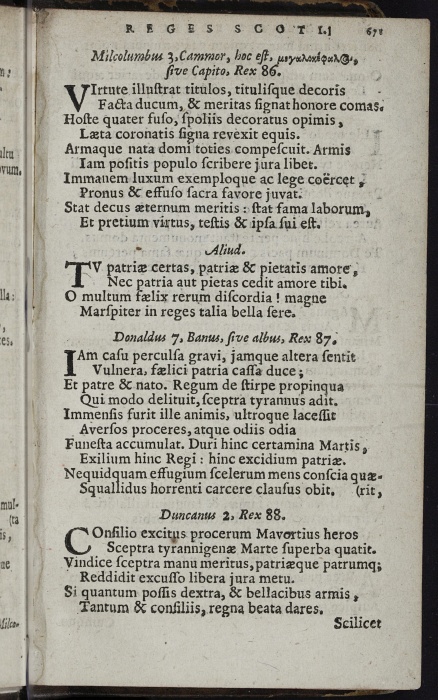 REGES SCOTI.] 671
Milcolumbus 3, Cammor, hoc eſt, μεγαλοκέφαλος,
ſive Capito, Rex 86.
VIrtute illuſtrat titulos, titulíſque decoris
Facta ducum, & meritas ſignat honore comas.
Hoſte quater fuſo, ſpoliis decoratus opimis,
Læta coronatis ſigna revexit equis.
Armaque nata domi toties compeſcuit. Armis
Iam poſitis populo ſcribere jura libet.
Immanem luxum exemploque ac lege coërcet,
Pronus & effuſo ſacra favore juvat.
Stat decus æternum meritis: ſtat fama laborum,
Et pretium virtus, teſtis & ipſa ſui eſt.
Aliud.
TV patriæ certas, patriæ & pietatis amore,
Nec patria aut pietas cedit amore tibi.
O multum fælix rerum diſcordia! magne
Marſpiter in reges talia bella ſere.
Donaldus 7, Banus, ſive albus, Rex 87.
IAm caſu perculſa gravi, jamque altera ſentit
Vulnera, fælici patria caſſa duce;
Et patre & nato. Regum de ſtirpe propinqua
Qui modo delituit, ſceptra tyrannus adit.
Immenſis furit ille animis, ultroque laceſſit
Averſos proceres, atque odiis odia
Funeſta accumulat. Duri hinc certamina Martis,
Exilium hinc Regi: hinc excidium patriæ.
Nequidquam effugium ſcelerum mens conſcia quæ-
Squallidus horrenti carcere clauſus obit. (rit,
Duncanus 2, Rex 88.
COnſilio excitus procerum Mavortius heros
Sceptra tyrannigenæ Marte ſuperba quatit.
Vindice ſceptra manu meritus, patriæque patrumq;
Reddidit excuſſo libera jura metu.
Si quantum poſſis dextra, & bellacibus armis,
Tantum & conſiliis, regna beata dares.
Scilicet